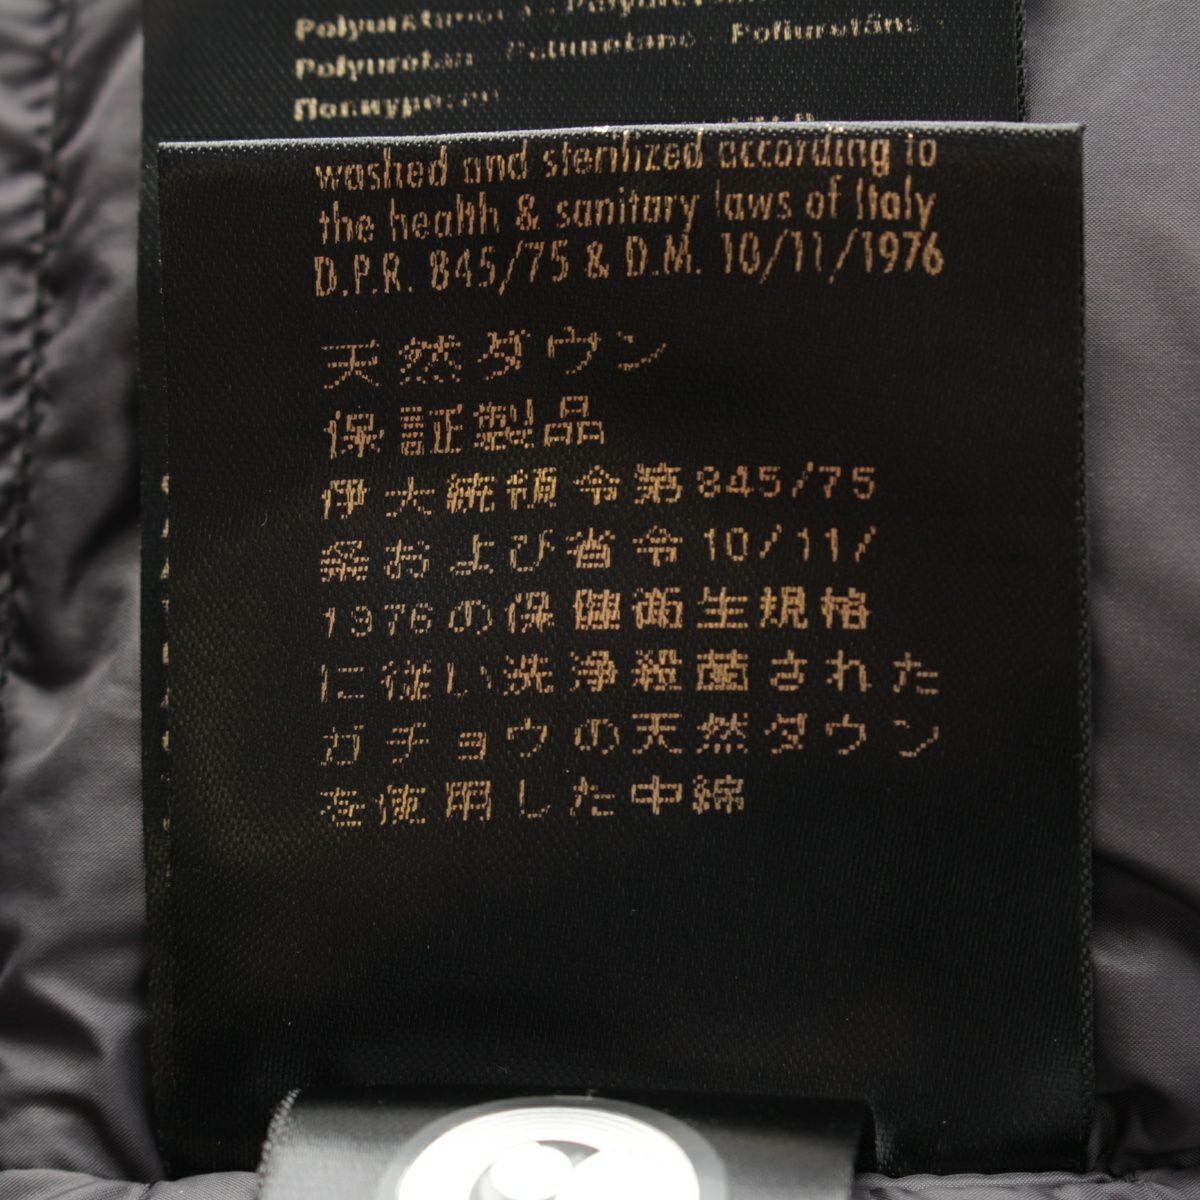 Polyuretan Poliuretano Poliuretāns
washed and sterilized according to
the health & sanitary laws of Italy
D.P.R. 845/75 & D.M. 10/11/1976
天然ダウン
保証製品
伊大統領令第845/75
条および省令10/11/
1976の保健衛生規格
に従い洗浄殺菌された
ガチョウの天然ダウン
を使用した中綿